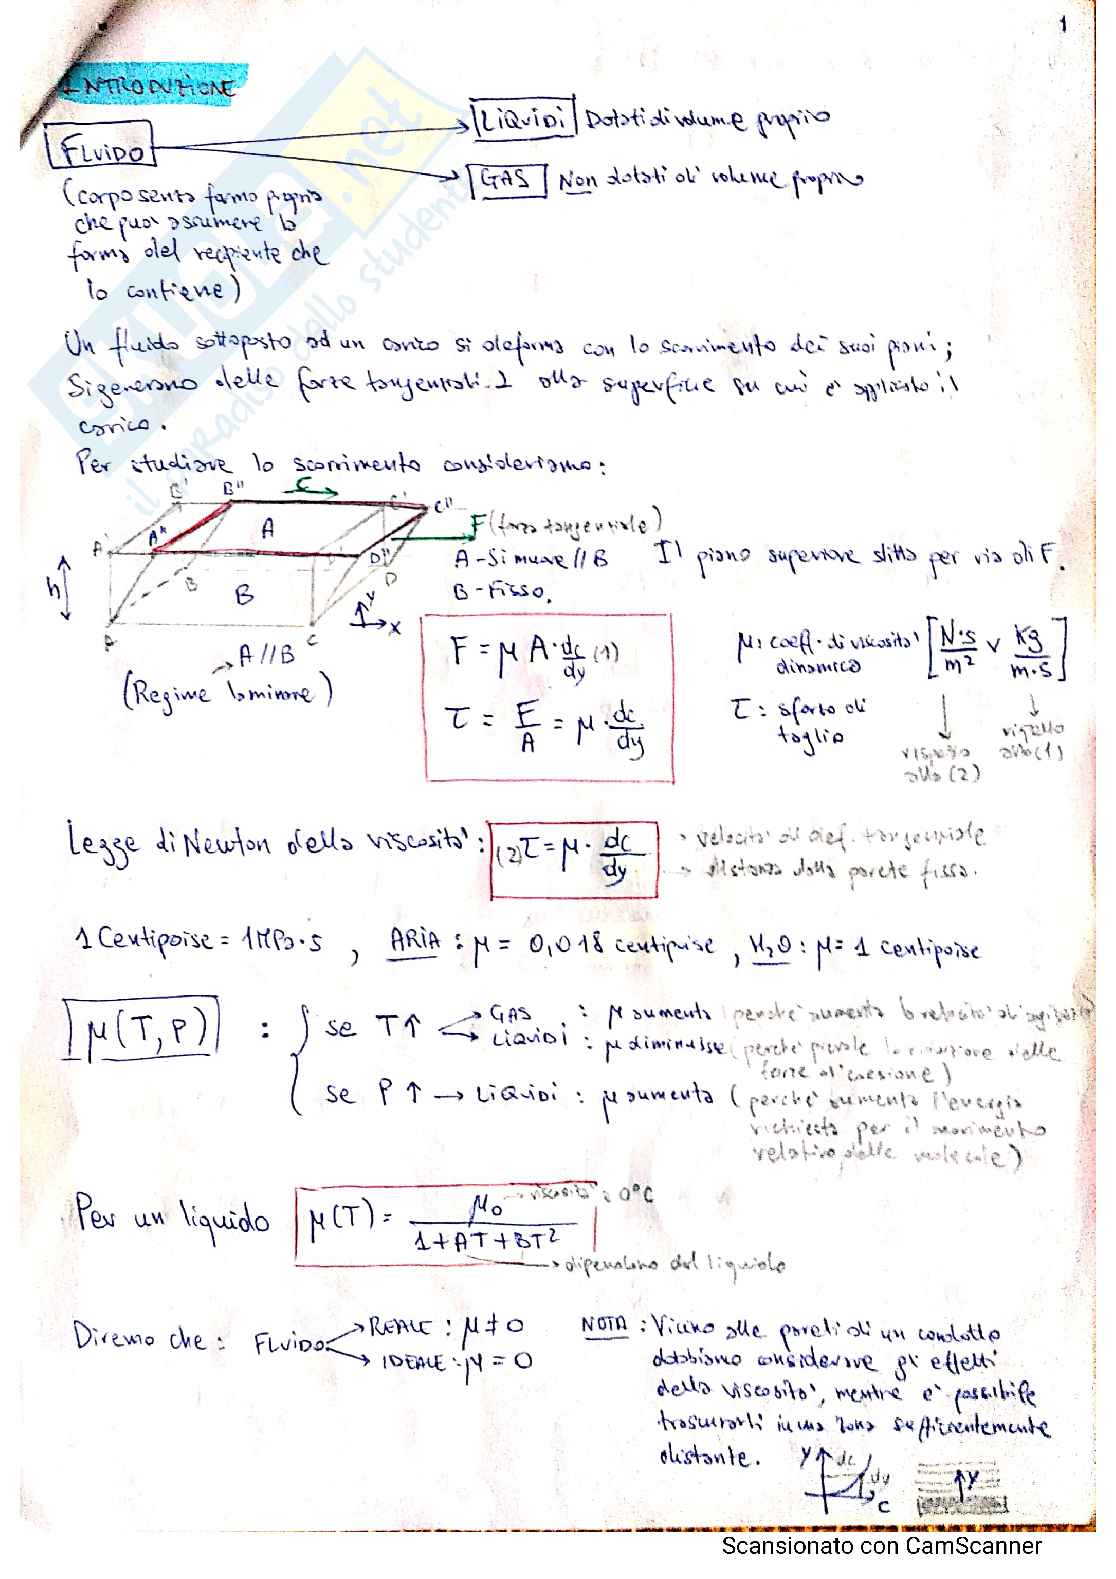 1
INTRODUZIONE
FLUIDO
LIQUIDI Dotati di volume proprio
GAS Non dotati di volume proprio
(corpo senza forma propria
che può assumere la
forma del recipiente che
lo contiene)
Un fluido sottoposto ad un carico si deforma con lo scorrimento dei suoi piani;
Si generano delle forze tangenziali ⊥ alla superficie su cui è applicato il
carico.
Per studiare lo scorrimento consideriamo:
B' B'' C C' C''
A' A'' A D'' D
h B B
A C
y x
F (forza tangenziale)
A - Si muove // B
B - Fisso.
Il piano superiore slitta per via di F.
→ A // B
(Regime laminare)
F = μ A · dc/dy (1)
τ = F/A = μ · dc/dy
μ: coeff. di viscosità dinamica [N·s/m² v kg/m·s]
τ: sforzo di taglio
rispetto alla (2)
rispetto alla (1)
Legge di Newton della viscosità: (2) τ = μ · dc/dy
→ velocità di def. tangenziale
→ distanza dalla parete fissa.
1 Centipoise = 1 MPa·s , ARIA : μ = 0,018 centipoise , H₂O : μ = 1 centipoise
μ(T, P) :
se T↑ GAS : μ aumenta (perché aumenta la velocità di
LIQUIDI : μ diminuisce (perché prevale la delle
forze di coesione)
se P↑ → LIQUIDI : μ aumenta (perché aumenta l'energia
richiesta per il movimento
relativo delle molecole)
Per un liquido μ(T) = μ₀ / 1+AT+BT²
→ viscosità a 0°C
→ dipendono dal liquido
Diremo che : FLUIDO
→ REALE : μ ≠ 0
→ IDEALE : μ = 0
NOTA : Vicino alle pareti di un condotto
dobbiamo considerare gli effetti
della viscosità, mentre è possibile
trascurarli in una zona sufficientemente
distante.
y dc dy c
y
Scansionato con CamScanner
il paradiso dello studente